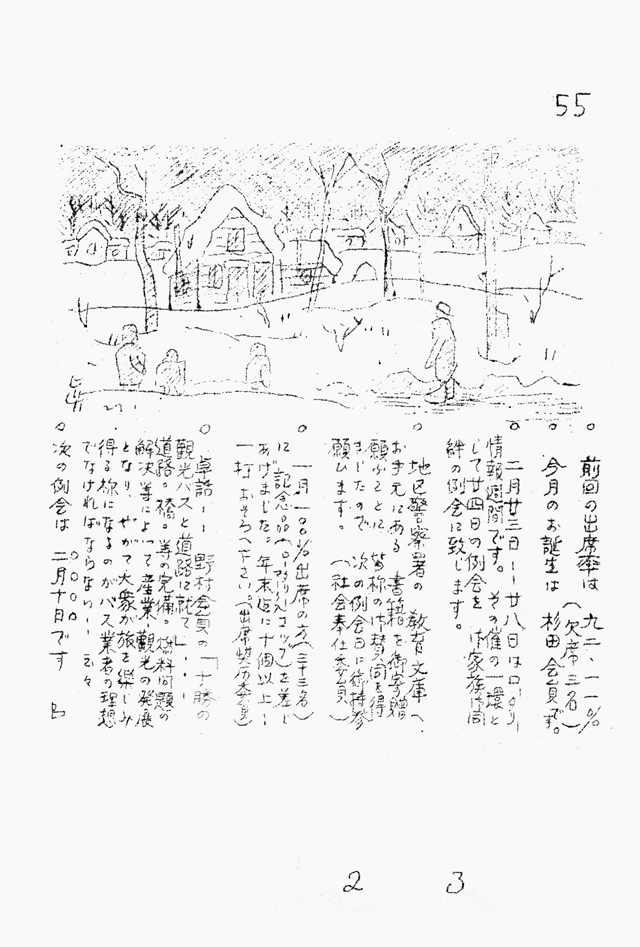 55
○ 前回の出席率は 九二、一一%
(欠席三名)
○ 今月のお誕生は 杉田会員です。
○ 二月廿三日ー廿八日はロータリー
情報週間です。その催の一環と
して廿四日の例会を 御家族御同
絆の例会に致します。
○ 地区警察署の 教育文庫へ
お手元にある 書籍を御寄贈
願ふことに 皆様の御賛同を得
ましたので 次の例会日に御持参
願ひます。 (社会奉仕委員)
○ 一月一〇〇%出席の方(三十三名)
に 記念品(ロータリーマーク入コップ)を差し
あげました。年末迄に十個以上ー
一打おそろへ下さい。(出席委員)
○ 卓話ーー 野村会員の「十勝の
観光バスと道路に就て」・・・
道路。橋。等の完備。燃料問題の
解決等によって産業、観光の発展
となり、やがて大衆が旅を楽しみ
得る様になるのがバス業者の理想
でなければならないーー云々
○○○○
○ 次の例会は 二月十日です
2 3